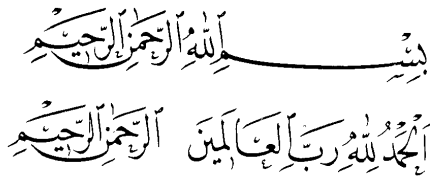 بِسْمِ اللهِ الرَّحْمٰنِ الرَّحِيْمِ
اَلْحَمْدُ لِلّٰهِ رَبِّ الْعَالَمِيْنَ الرَّحْمٰنِ الرَّحِيْمِ